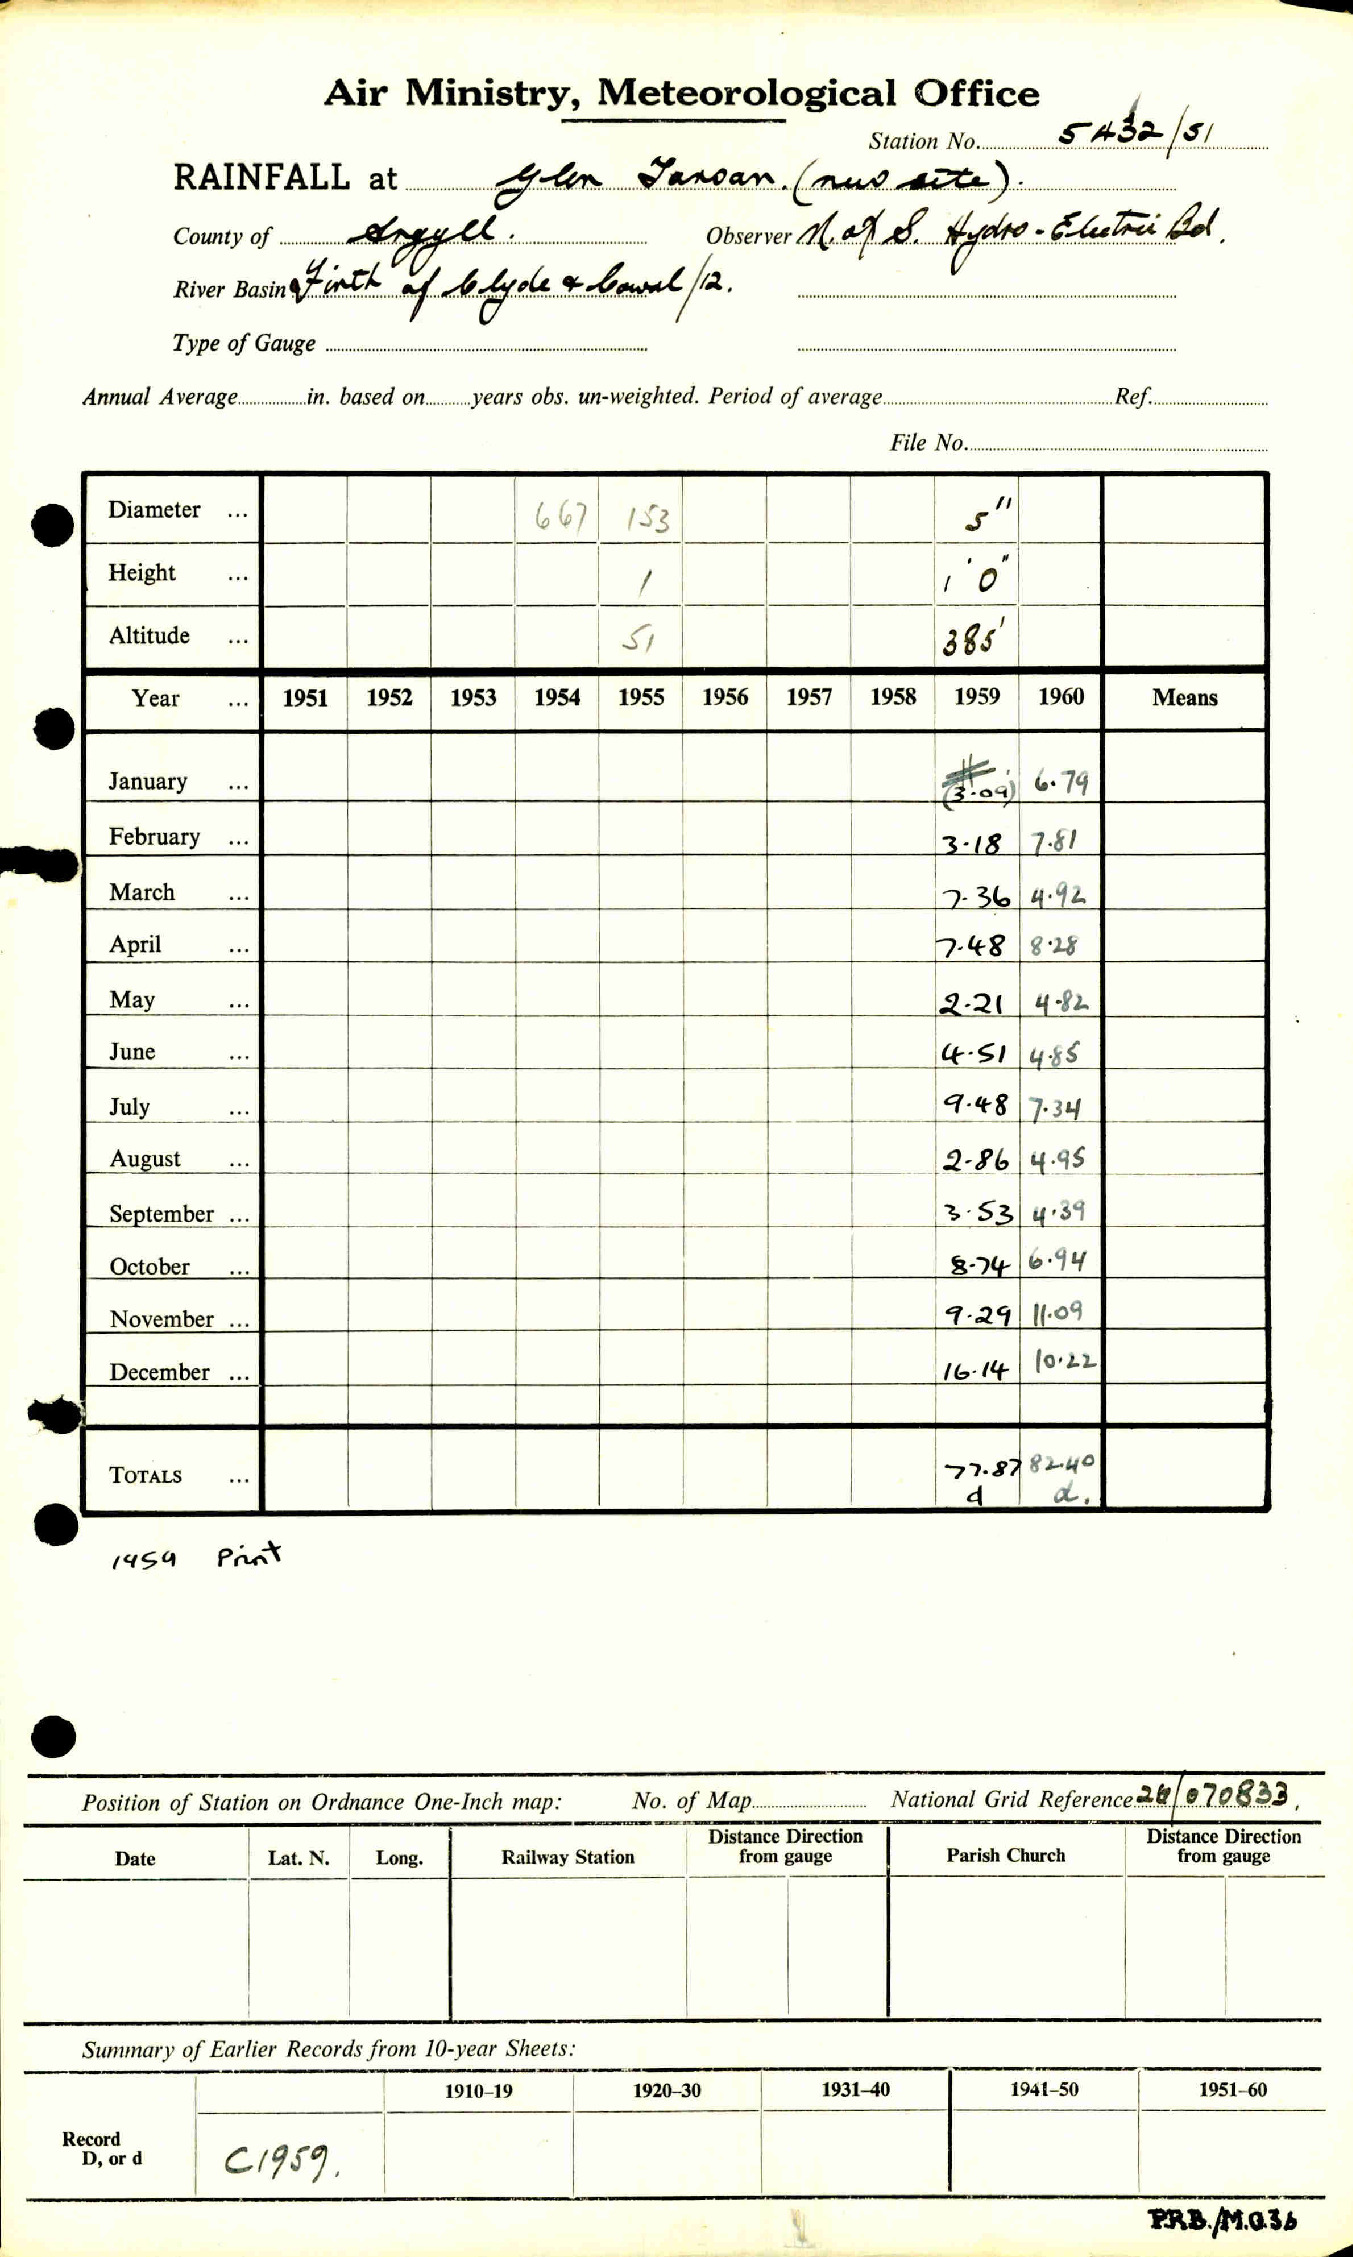 Air Ministry, Meteorological Office
Station No. 5432/51
RAINFALL at Glen Tarsan. (new site).
County of Argyll. Observer N. of S. Hydro-Electric Bd.
River Basin Firth of Clyde & Cowal/12.
Type of Gauge
Annual Average in. based on years obs. un-weighted. Period of average Ref.
File No.
Diameter ... 667 153 5"
Height ... 1 1'0"
Altitude ... 51 385'
Year ... 1951 1952 1953 1954 1955 1956 1957 1958 1959 1960 Means
January ... (3.09) 6.79
February ... 3.18 7.81
March ... 7.36 4.92
April ... 7.48 8.28
May ... 2.21 4.82
June ... 4.51 4.85
July ... 9.48 7.34
August ... 2.86 4.95
September ... 3.53 4.39
October ... 8.74 6.94
November ... 9.29 11.09
December ... 16.14 10.22
TOTALS ... 77.87 82.40
d d.
1959 Print
Position of Station on Ordnance One-Inch map: No. of Map National Grid Reference 26/070833.
Date Lat. N. Long. Railway Station Distance Direction from gauge Parish Church Distance Direction from gauge
Summary of Earlier Records from 10-year Sheets:
1910–19 1920–30 1931–40 1941–50 1951–60
Record
D, or d C1959.
P.R.B./M.O.36